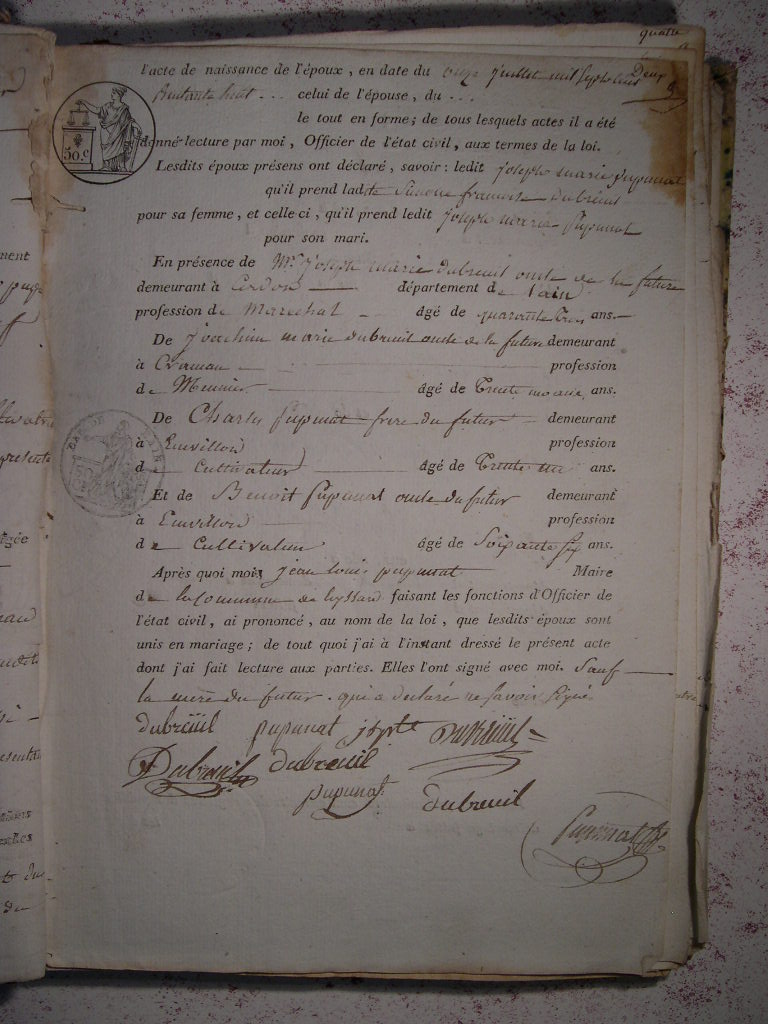 quatre
l'acte de naissance de l'époux, en date du onze juillet mil sept cent
Deux
5
huit celui de l'épouse, du
le tout en forme; de tous lesquels actes il a été
donné lecture par moi, Officier de l'état civil, aux termes de la loi.
50.c
Lesdits époux présens ont déclaré, savoir: ledit joseph marie pupunat
qu'il prend ladite francoise Dubreuil
pour sa femme, et celle ci, qu'il prend ledit joseph marie Pupunat
pour son mari.
En présence de Mr. joseph marie dubreuil oncle de la future
demeurant à Cordon département de l'ain
profession de Marechal âgé de quarante trois ans.
De joachim marie dubreuil oncle de la future demeurant
à profession
de Meunier âgé de Trente ans.
De Charles Pupunat frere du futur demeurant
à profession
de Cultivateur âgé de Trente un ans.
Et de Benoit Pupunat oncle du futur demeurant
à profession
de Cultivateur âgé de Soixante six ans.
Après quoi moi, jean louis pupunat Maire
de la commune de faisant les fonctions d'Officier de
l'état civil, ai prononcé, au nom de la loi, que lesdits époux sont
unis en mariage; de tout quoi j'ai à l'instant dressé le présent acte
dont j'ai fait lecture aux parties. Elles l'ont signé avec moi. Sauf
la mere du futur. qui a déclaré ne savoir signé
dubreüil pupunat Dubreüil
Dubreuil dubreuil
pupunat dubreuil
Pupunat